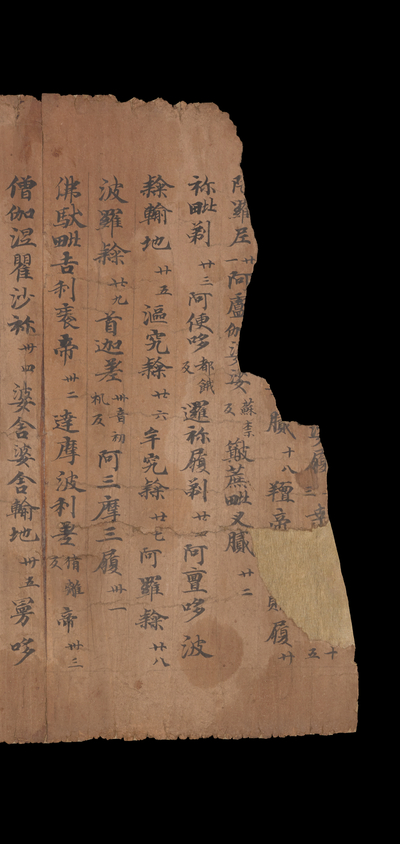 履 十五
膩十八羶帝 履廿
阿羅尼廿一阿盧伽婆娑蘇柰反簸蔗毗叉膩廿二
祢毗剃廿三阿便哆都餓反邏祢履剃廿四阿亶哆波
隸輸地廿五漚究隸廿六牟究隸廿七阿羅隸廿八
波羅隸廿九首迦差卅音初机反阿三摩三履卅一
佛馱毗吉利袠帝卅二達摩波利差猜離反帝卅三
僧伽涅瞿沙祢卅四婆舍婆舍輸地卅五曼哆